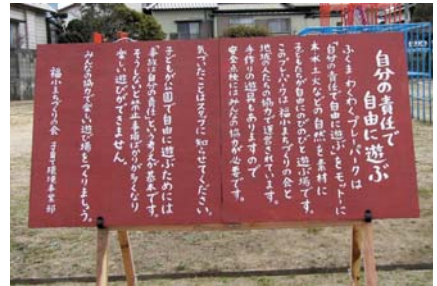 自分の責任で
自由に遊ぶ
ふくまわくわくプレーパークは
「自分の責任で自由に遊ぶ」をモットーに
木水土火などの自然を素材に
子どもたちが自由にのびのびと遊ぶ場です。
このプレーパークは福小まちづくりの会と
地域の人たちの協力で運営されています。
手作りの遊具もありますので
安全点検にはみんなの協力が必要です。
気づいたことはスタッフに知らせてください。
子どもが公園で自由に遊ぶためには
「事故は自分の責任」という考えが基本です。
そうしないと禁止事項ばかりが多くなり
楽しい遊びができません。
みんなの協力で楽しい遊び場をつくりましょう。
福小まちづくりの会 子育て環境事業部